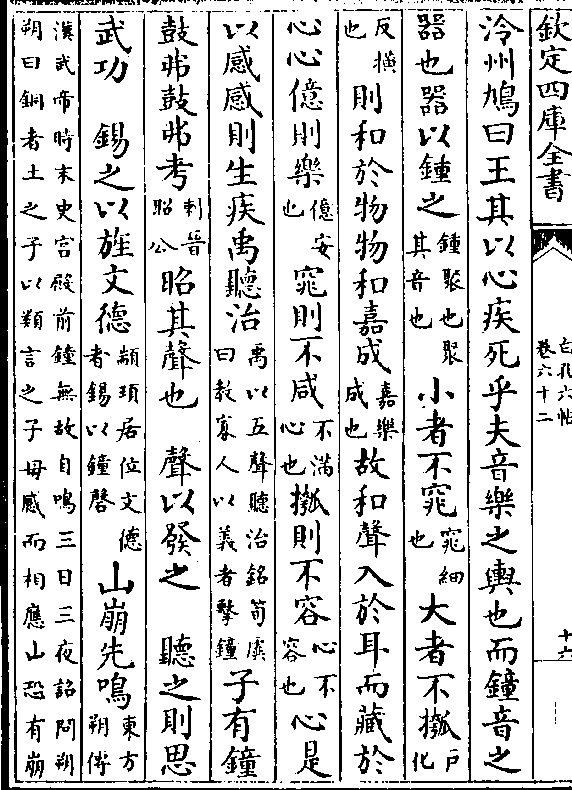 欽定四庫全書
白孔六帖
卷六十二
十六
泠州鳩曰王其以心疾死乎夫音樂之輿也而鐘音之
器也器以鍾之鍾聚也聚其音也小者不窕窕細也大者不摦戶化
反橫也則和於物物和嘉成嘉樂成也故和聲入於耳而藏於
心心億則樂億安也窕則不咸不滿心也摦則不容心不容也心是
以感感則生疾禹聽治禹以五聲聽治銘筍虡曰教寡人以義者擊鐘子有鐘
鼓弗鼓弗考刺晉昭公昭其聲也 聲以發之 聽之則思
武功 錫之以旌文德顓頊居位文德者錫以鐘磬山崩先鳴東方朔傳
漢武帝時未央宮殿前鐘無故自鳴三日三夜詔問朔
朔曰銅者土之子以類言之子母感而相應山恐有崩